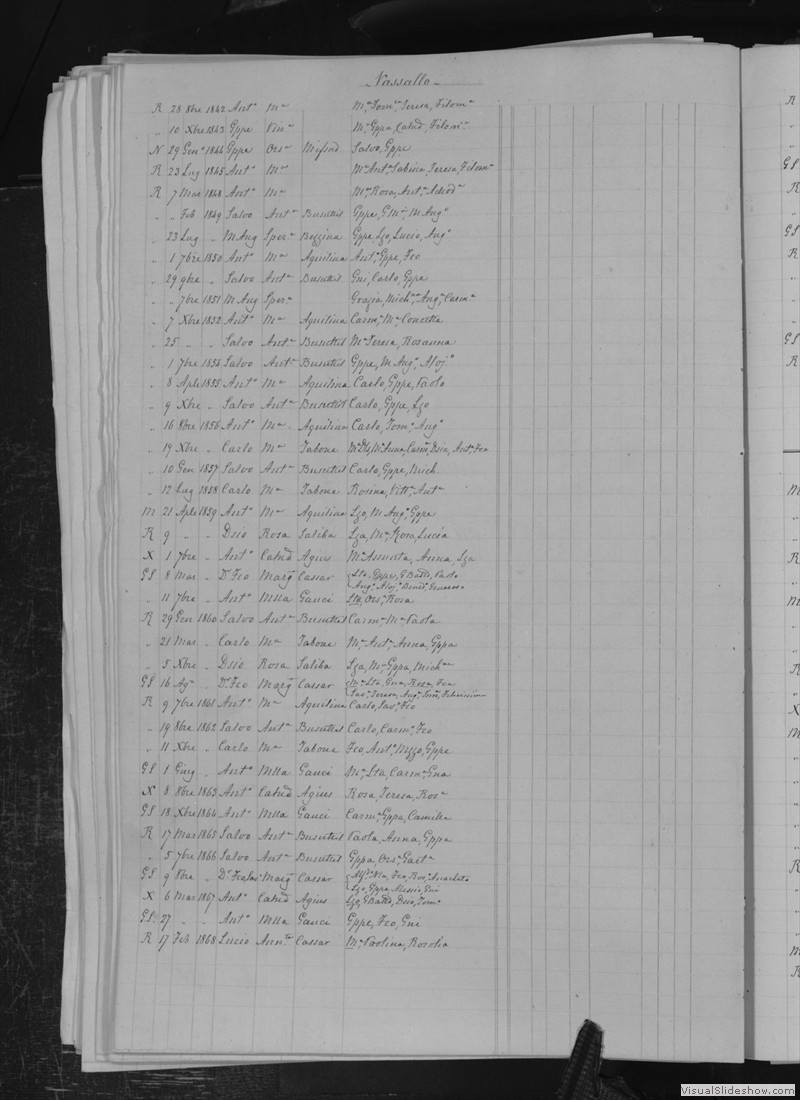 Vassallo
R 28 8bre 1842 Ant° Ma Ma, Toma, Teresa, Filoma
" 10 Xbre 1843 Gppe Vina Ma, Gppa, Catud, Filoma
N 29 Gen° 1844 Gppe Ors° Mifsud Salvo, Gppe
R 23 Lug 1845 Ant° Ma Ma Anta, Sabina, Teresa, Filoma
R 7 Mar 1848 Ant° Ma Ma, Rosa, Anta
" " Feb 1849 Salvo Anta Busuttil Gppe, G Ma, M Ang°
" 23 Lug " M Ang Spera Bezzina Gppe, Lzo, Lucio, Ang°
" 1 7bre 1850 Ant° Ma Aquilina Ant°, Gppe, Fco
" 29 9bre " Salvo Anta Busuttil Gni, Carlo, Gppa
" " 7bre 1851 M Ang Spera Grazia, Micha, Anga, Carma
" 7 Xbre 1852 Ant° Ma Aquilina Carma, Ma Concetta
" 25 " " Salvo Anta Busuttil Ma Teresa, Rosanna
" 1 7bre 1854 Salvo Anta Busuttil Gppe, M Ang°, Aloj°
" 8 Aple 1855 Ant° Ma Aquilina Carlo, Gppe, Paolo
" 9 Xbre " Salvo Anta Busuttil Carlo, Gppe, Lzo
" 16 8bre 1856 Ant° Ma Aquilina Carlo, Tom° Ang°
" 19 Xbre " Carlo Ma Tabone Ma Dls, Ma Anna, Carma, Dsia, Anta, Fca
" 10 Gen 1857 Salvo Anta Busuttil Carlo, Gppe, Mich
" 12 Lug 1858 Carlo Ma Tabone Rosina, Vitta, Anta
M 21 Aple 1859 Ant° Ma Aquilina Lzo, M Ang°, Gppe
R 9 " " Dsio Rosa Saliba Lza, Ma, Rosa, Lucia
X 1 7bre " Ant° Catud Agius Ma Assunta, Anna, Lza
GS 8 Mar " Dr Fco Marg Cassar Gppe, G Batta, Paolo
Ang°, Aloj°, Bened°
" 11 7bre " Ant° Mlla Gauci Lta, Orsa, Rosa
R 29 Gen 1860 Salvo Anta Busuttil Carma, Ma Paola
" 21 Mar " Carlo Ma Tabone Ma, Anta, Anna, Gppa
" 5 Xbre " Dsio Rosa Saliba Lza, Ma, Gppa, Micha
GS 16 Ag° " Dr Fco Marg Cassar Ma, Lta, Gna, Rosa, Fca
Teresa, Anga
R 9 7bre 1861 Ant° Ma Aquilina Carlo, Sav°, Fco
" 19 8bre 1862 Salvo Anta Busuttil Carlo, Carm°, Fco
" 11 Xbre " Carlo Ma Tabone Fco, Ant°, Nzzo, Gppe
GS 1 Giug " Ant° Mlla Gauci Ma, Lta, Carma, Gna
X 8 8bre 1863 Ant° Catud Agius Rosa, Teresa, Rosa
GS 18 Xbre 1864 Ant° Mlla Gauci Carma, Gppa, Camilla
R 17 Mar 1865 Salvo Anta Busuttil Paola, Anna, Gppa
" 5 7bre 1866 Salvo Anta Busuttil Gppa, Orsa, Gaeta
GS 9 8bre " Dr Fco Marg Cassar Alf°, Fco
Lzo, Gppe, Alessio, Gni
X 6 Mar 1867 Ant° Catud Agius Lzo, G Batta, Dsio, Tom°
GS 27 " " Ant° Mlla Gauci Gppe, Fco, Gni
R 17 Feb 1868 Lucio Annta Cassar Ma, Paolina, Rosolia
VisualSlideshow.com